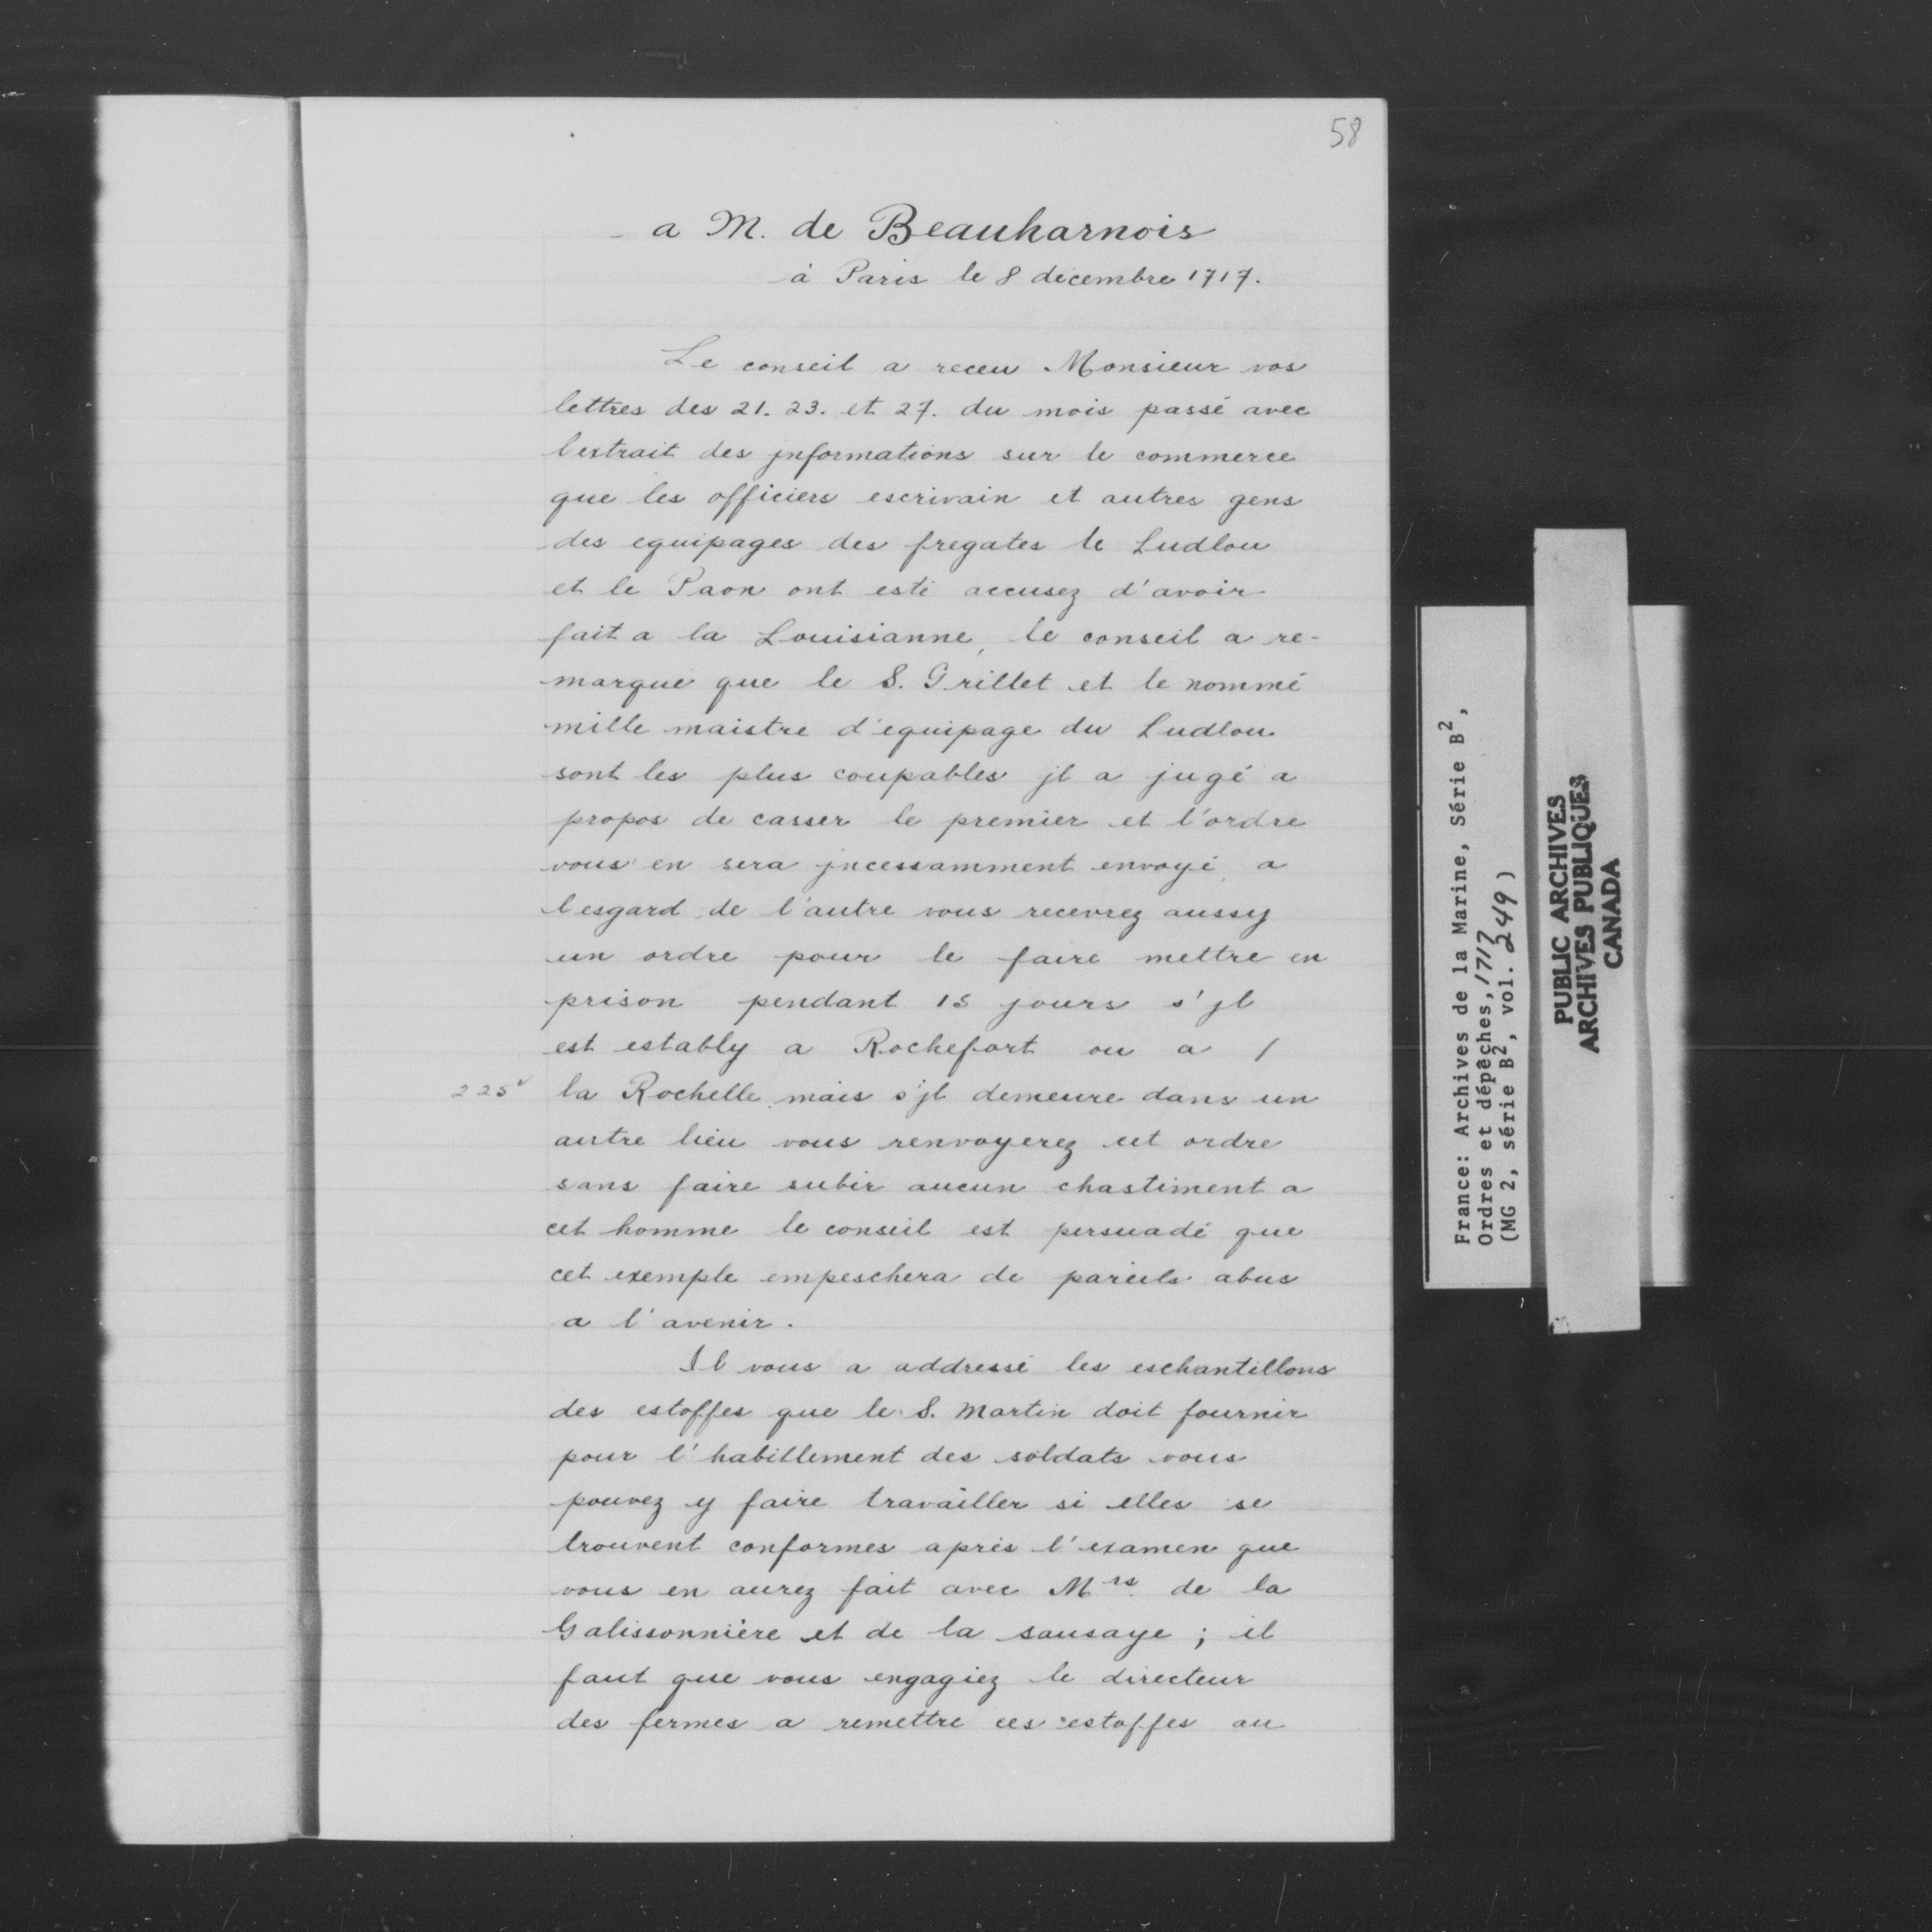 58
a M. de Beauharnois
à Paris le 8 décembre 1717.
Le conseil a receu Monsieur vos
lettres des 21. 23. et 27. du mois passé avec
lextrait des jnformations sur le commerce
que les officiers escrivain et autres gens
des equipages des fregates le Ludlou
et le Paon ont esté accusez d'avoir
fait a la Louisianne, le conseil a re-
marqué que le S. Grillet et le nommé
mille maistre d'equipage du Ludlou
sont les plus coupables jl a jugé a
propos de casser le premier et l'ordre
vous en sera jncessamment envoyé, a
lesgard de l'autre vous recevrez aussy
un ordre pour le faire mettre en
prison pendant 15 jours s'jl
est estably a Rochefort ou a /
225v la Rochelle, mais s'jl demeure dans un
autre lieu vous renvoyerez cet ordre
sans faire subir aucun chastiment a
cet homme le conseil est persuadé que
cet exemple empeschera de pareils abus
a l'avenir.
Il vous a addressé les eschantillons
des estoffes que le S. Martin doit fournir
pour l'habillement des soldats vous
pouvez y faire travailler si elles se
trouvent conformes après l'examen que
vous en aurez fait avec Mrs. de la
Galissonnière et de la sausaye ; il
faut que vous engagiez le directeur
des fermes a remettre ces estoffes au
France: Archives de la Marine, Série B2,
Ordres et dépêches, 1717
(MG 2, série B2, vol. 249)
PUBLIC ARCHIVES
ARCHIVES PUBLIQUES
CANADA